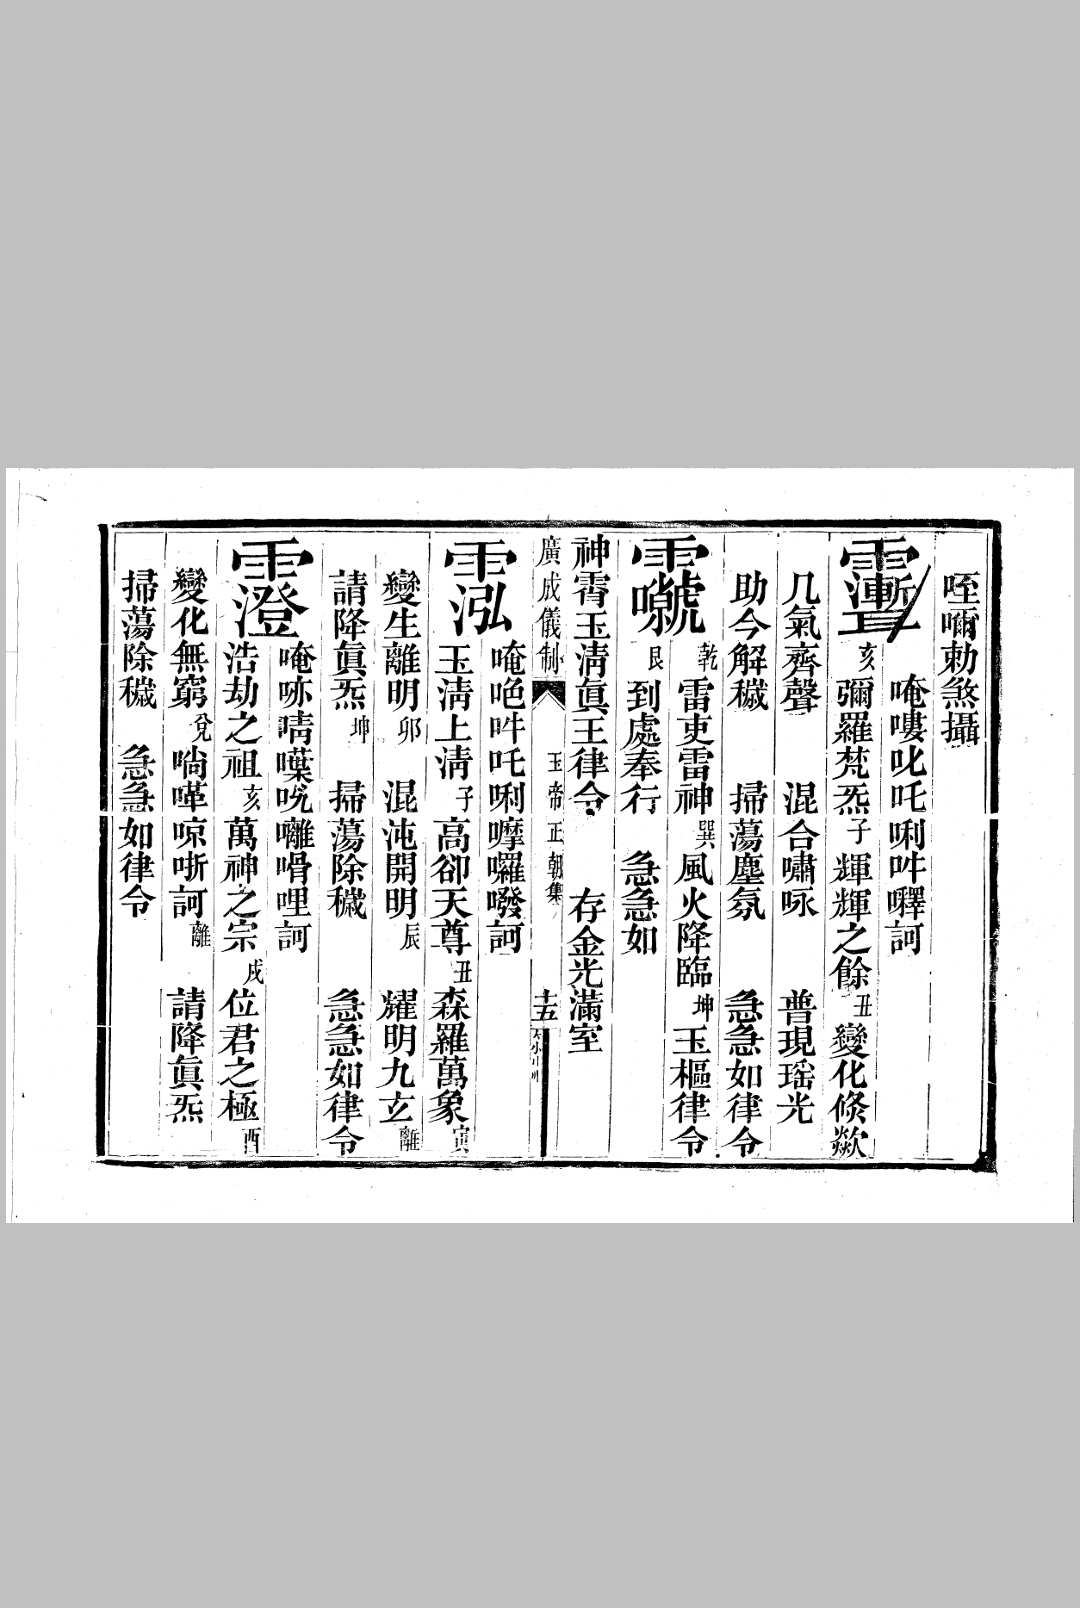 咥嚩勅煞攝
唵嘍叱吒唎吽㘁訶
亥彌羅梵炁子輝輝之餘丑變化倏歘
几氣齊聲 混合嘯咏 普現瑤光
助今解穢 掃蕩塵氛 急急如律令
乾雷吏雷神巽風火降臨坤玉樞律令
艮到處奉行 急急如
神霄玉淸眞王律令 存金光滿室
廣成儀制 玉帝正朝集 十五
泓 唵唈吽吒唎嚤囉㗶訶
玉淸上淸子高卻天尊丑森羅萬象寅
變生離明卯 混沌開明辰 耀明九玄離
請降眞炁坤 掃蕩除穢 急急如律令
唵哧啨㗼哾囄嗗哩訶
浩劫之祖亥萬神之宗戌位君之極酉
變化無窮兌啺嘩哴哳訶離 請降眞炁
掃蕩除穢 急急如律令